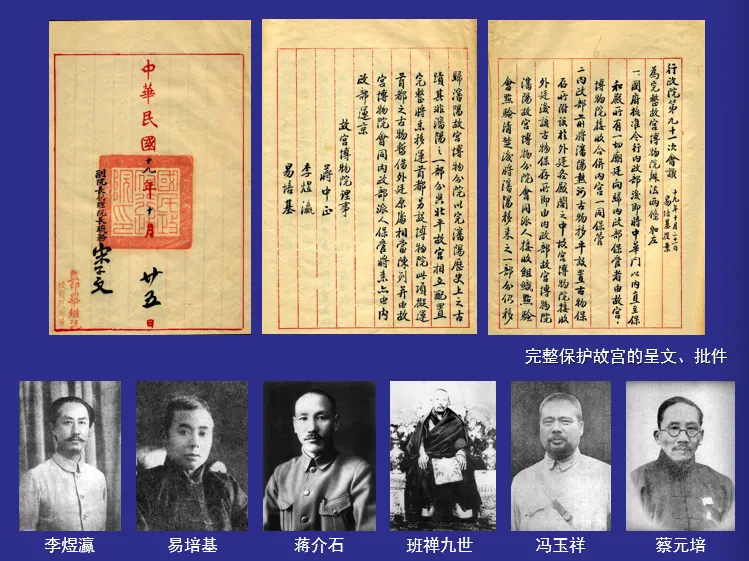 行政院第九十一次會議
十九年十月二十一日
易培基提案
為完整故宮博物院辦法兩條如左
一國府核准令行內政部後即將中華門以內直至保
和殿所有一切廟廷向歸內政部保管者由故宮
博物院接收合併內宮一同保管
二內政部前將瀋陽熱河古物移平設置古物保
存所附設於外廷各殿閣之中故宮博物院接收
外廷後該古物保存所即由內政部故宮博物院
瀋陽故宮博物分院會同派人接收組織點驗
會點驗清楚後將瀋陽移來之一部份仍移
歸瀋陽故宮博物分院以完瀋陽歷史上之古
蹟其非瀋陽之一部份與北平故宮相互配置
完整將來移運首都另設博物院此項擬運
首都之古物暫借外廷原處相當陳列并由故
宮博物院會同內政部派人保管將來亦由內
政部運京
故宮博物院理事
蔣中正
李煜瀛
易培基
中華民國十九年十月廿五日
副院長代理院長職務宋子文
完整保护故宫的呈文、批件
李煜瀛
易培基
蒋介石
班禅九世
冯玉祥
蔡元培